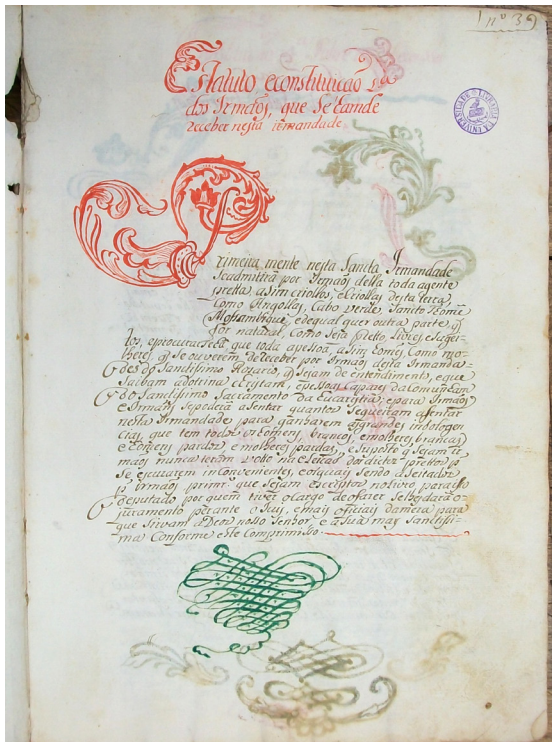 nº 39
Estatuto econstituicaõ
dos Irmaõs, que Se Eamde
receber nesta irmandade
rimeira mente nesta Sancta Irmandade
Seadmitiraã por Irmaõs della toda agente
pretta asim criollos, eCriollas desta terra,
Como Angollas, Cabo verde, Santo Eomé
Mossambique, edequal quer outra parte q̃
for natural Como seja Pretto, Livres, eSugei-
tos, eprocurarseá que toda apessoá, aSim Eomes, Como mo-
lheres q̃ Se ouverem deReceber por Irmaõs desta Irmanda-
de do Sandissimo Rozario, q̃ Sejam de entendimento, eque
Saibam adotrina cristam, epessoas capazes da Comunham
do Sandissimo Sacramento da Eucaristia; epara Irmaõs
eIrmans Sepoderá aSentar quantos Sequizeram asentar
nesta Irmandade para ganharem asgrandes indolgen
cias, que tem todos os Eomens, brancos, emolheres brancas
e Eomens pardos, emolheres pardas, eSuposto q̃ Sejam ir
maõs numca teram Votto na eleicaõ dos dictos prettos por
Se escuzarem inconvenientes, osquais Sendo aSeitados
p.r Irmaõs primr.º que Sejam escriptos no livro para isso
deputado por quem tiver oCargo de ofazer Selhe dará o
juramento perante o Juiz, emais oficiais damera para
que Sirvam aDeos nosso Senhor, e aSua may Sanctissi-
ma Conforme este Comprimisso